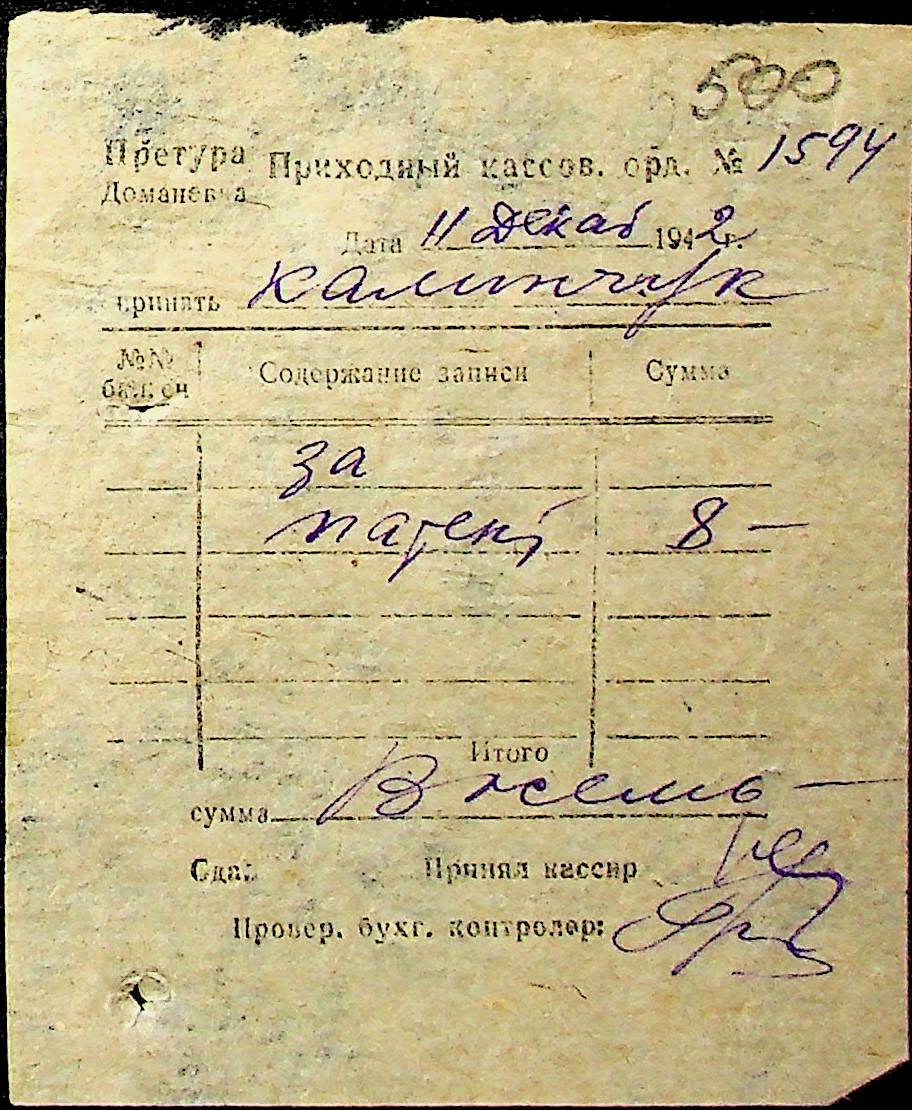 500
Претура Приходный кассов. орд. № 1594
Доманевка
Дата 11 Декаб 1942г.
принять Калинчук
№№ бал. сч Содержание записи Сумма
за
патент 8 —
Итого
сумма Восемь —
Сдал Принял кассир
Провер. бухг. контролер: